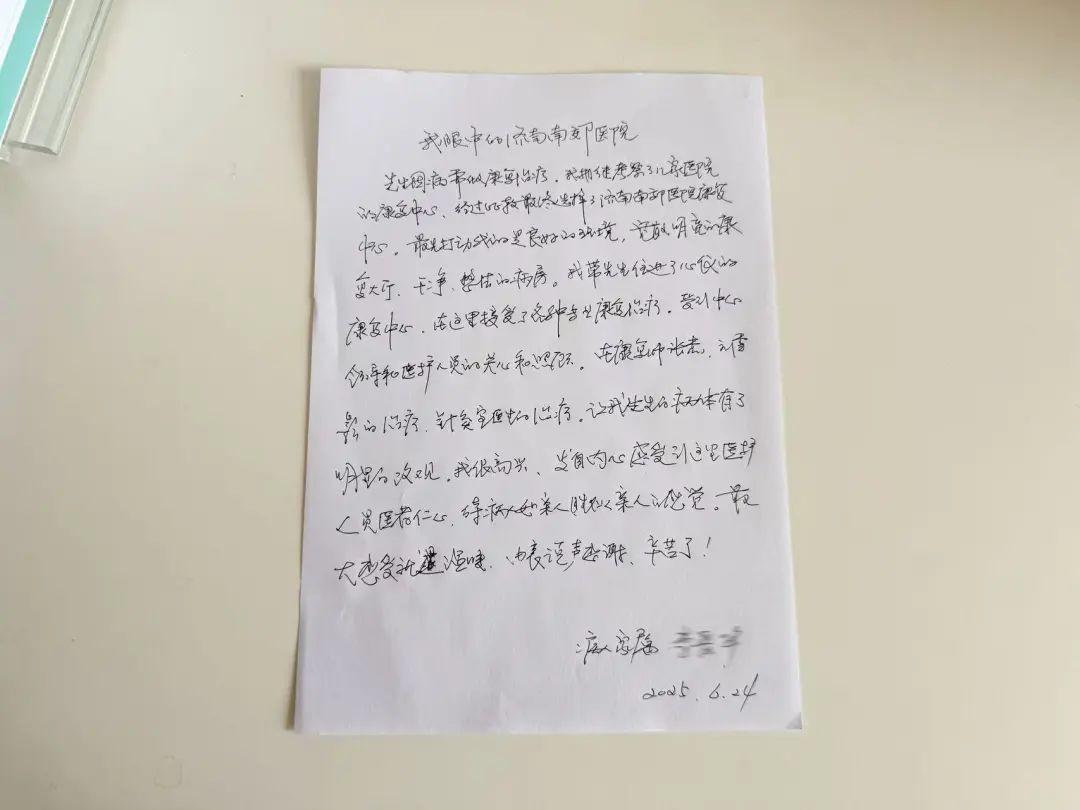 我眼中的济南南郊医院
先生因病需做康复治疗。我相继考察了几家医院
的康复中心,经过比较最终选择了济南南郊医院康复
中心。最先打动我的是良好的环境,宽敞明亮的康
复大厅、干净、整洁的病房。我带先生住进了心仪的
康复中心,在这里接受了各种专业康复治疗。受到中心
领导和医护人员的关心和照顾。在康复师张杰、
的治疗、针灸室医生的治疗。让我先生的病体有了
明显的改观。我很高兴、发自内心感受到这里医护
人员医者仁心,待病人如亲人胜似亲人的感觉。最
大感受就是温暖、由衷说声谢谢、辛苦了!
病人家属
2025.6.24